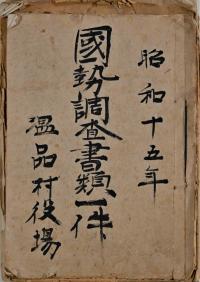 昭和十五年
國勢調査書類一件
温品村役場